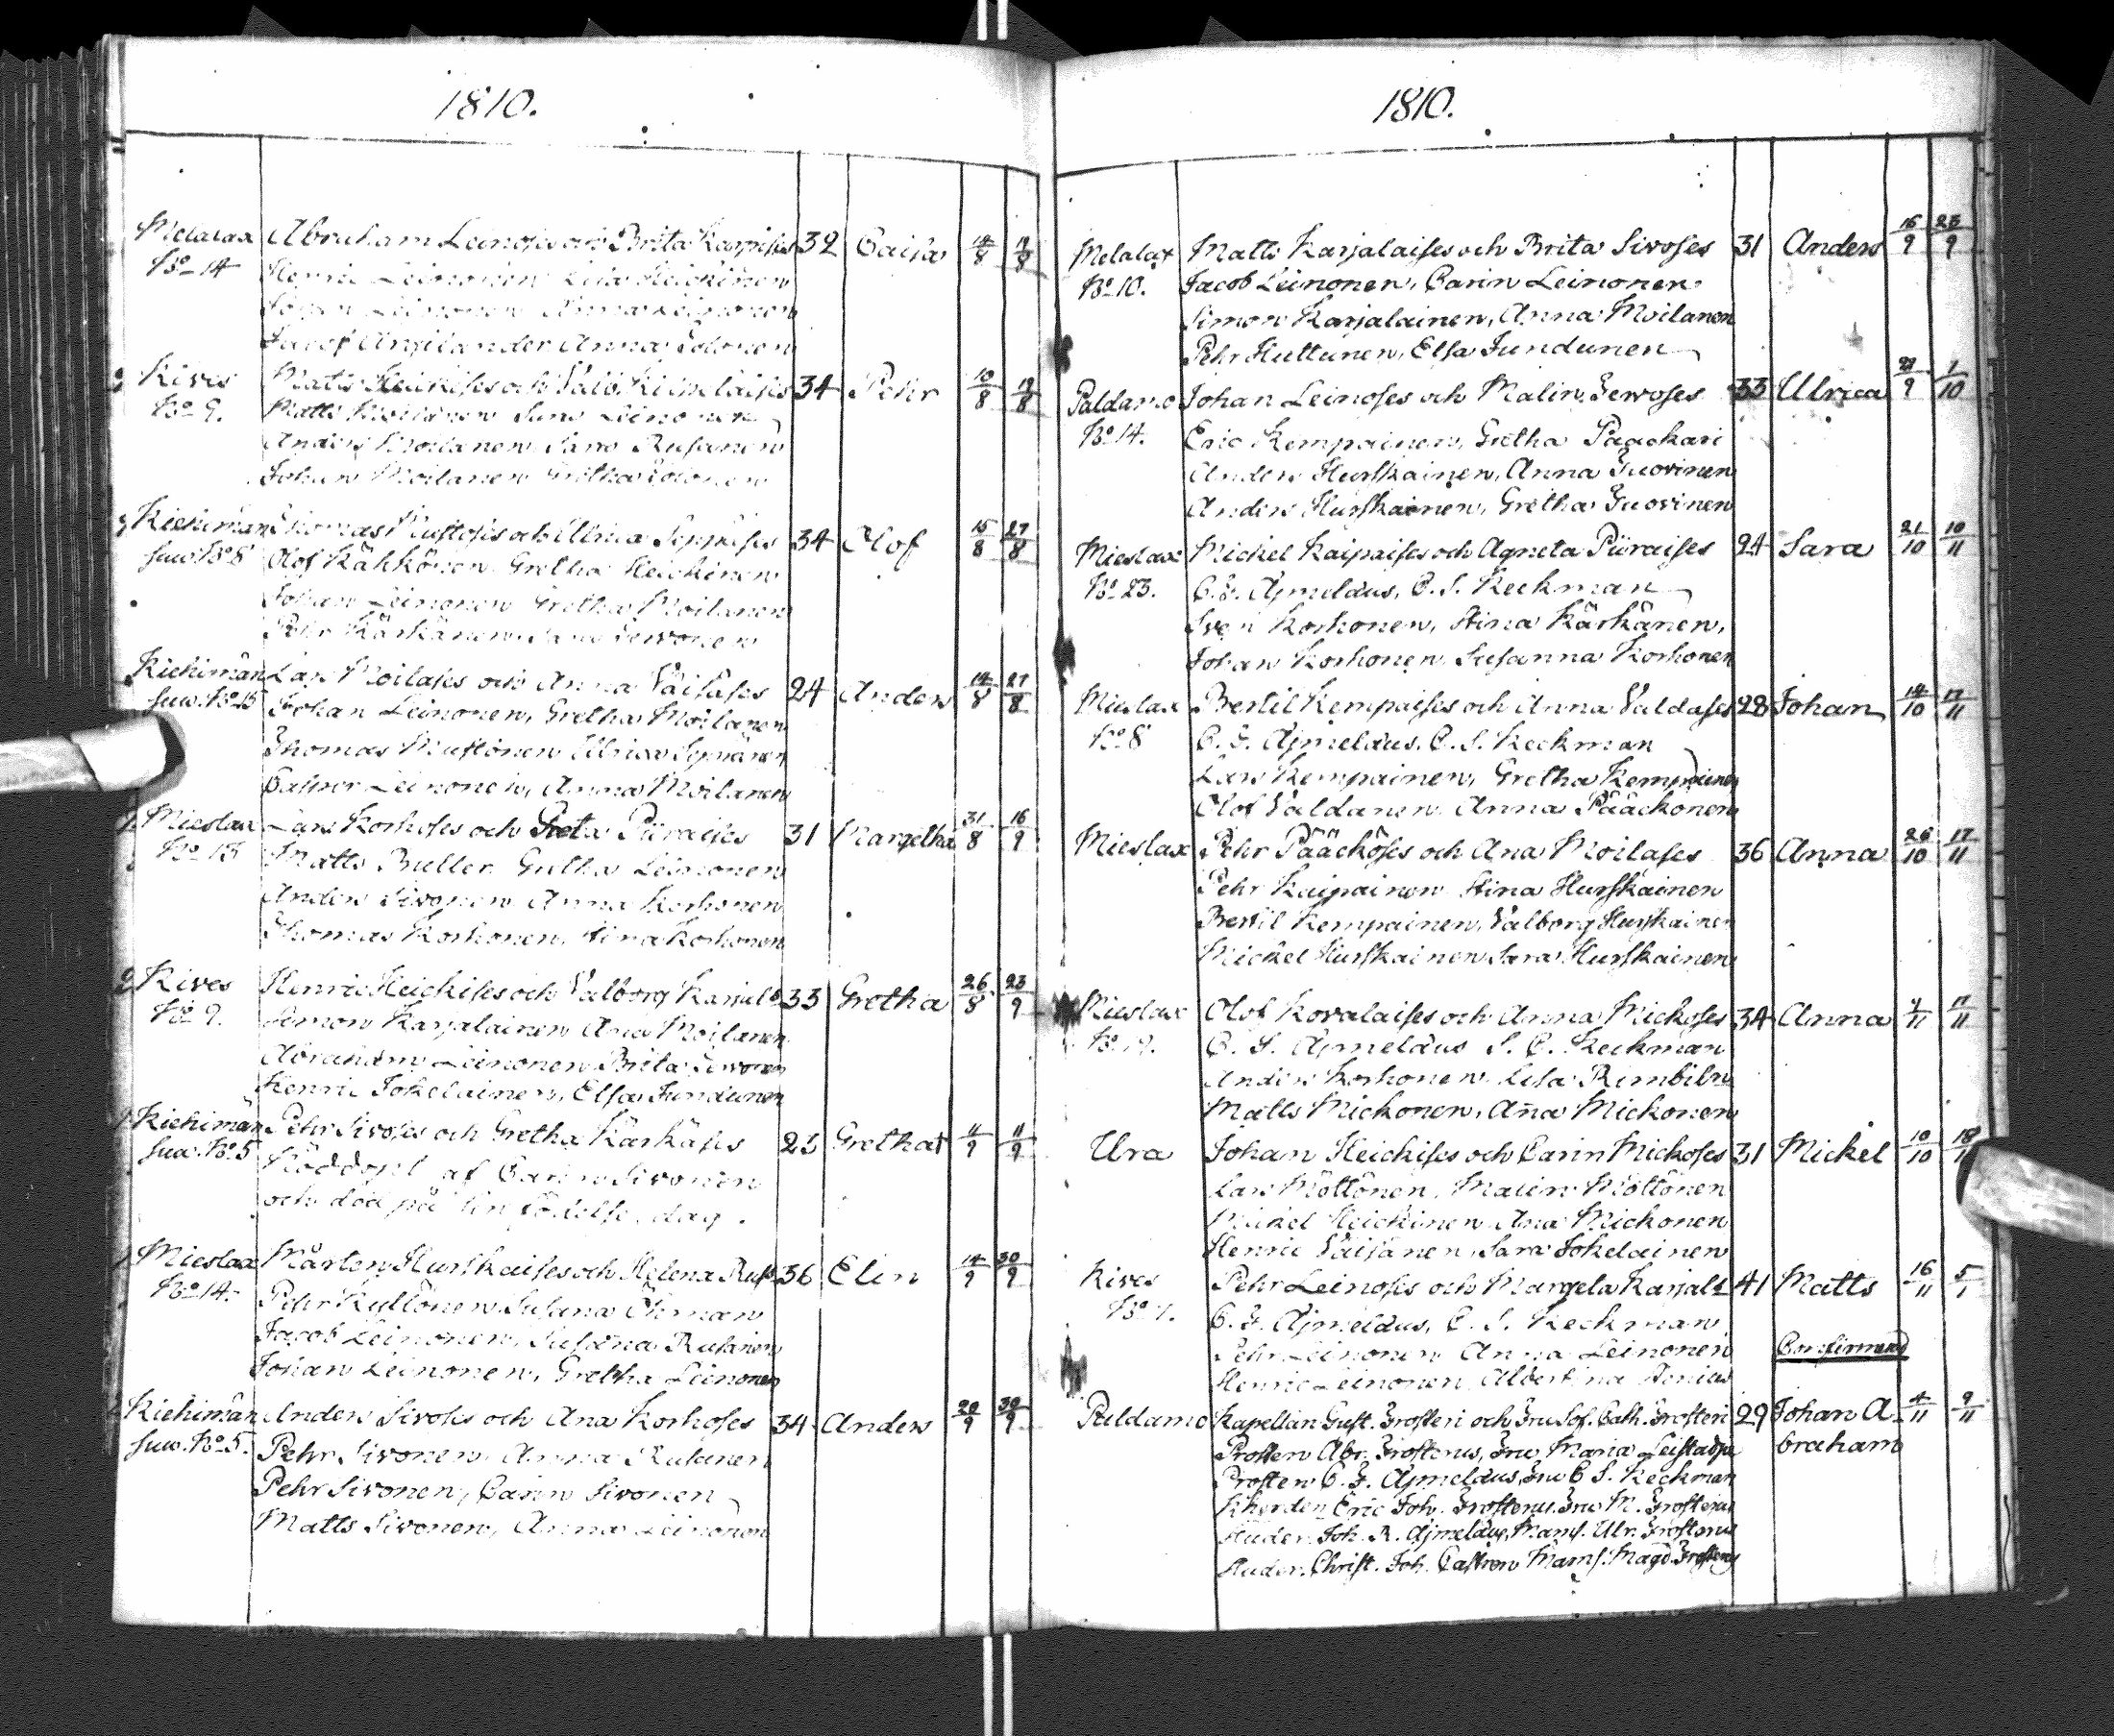 1810.
Melalax Abraham Leinoses och Brita Karpises 32 Caisa 14/8 19/8
No 14 Henric Leinonen Lisa Heickinen
Johan Leinonen Anna Leinonen
Jacob Anna Tolonen
Kives Matts Heickises och Valb. 34 Pehr 10/8 19/8
No 9. Matts Moilanen Leinonen
Anders Moilanen Sara Rusanen
Johan Moilanen Gretha Tolonen
Kiehimän Thomas Mustoses och Ulrica 34 Olof 15/8 27/8
suu. No 8 Olof Kähkönen Gretha Heickinen
Johan Leinonen Gretha Moilanen
Pehr Kärkänen Sara Tervonen
Kiehimän Lars Moilases och Anna Väisäses 24 Anders 14/8 27/8
suu. No 15 Johan Leinonen, Gretha Moilanen
Thomas Mustonen Ulrica
Casper Leinonen, Anna Moilanen
Mieslax Lars Korhoses och Greta Piiraises 31 Margetha 31/8 16/9
No 13 Matts Buller Gretha Leinonen
Anders Sivonen Anna Korhonen
Thomas Korhonen, Stina Korhonen
Kives Henric Heickises och Valborg Karjal: 33 Gretha 26/8 23/9
No 9. Simon Karjalainen Ana Moilanen
Abraham Leinonen Brita Sivonen
Henric Jokelainen, Elsa Jundunen
Kiehimän Pehr Sivoses och Gretha Kärkäses 23 Gretha † 11/9 11/9
suu. No 5 Nöddöpt af Carin Sivonen
och död på sin födelse dag.
Mieslax Mårten Hurskaises och Helena Rus: 36 Elin 14/9 30/9
No 14. Pehr Kyllönen Susana Öhman
Jacob Leinonen, Susana Rusanen
Johan Leinonen, Gretha Leinonen
Kiehimän Anders Sivoses och Ana Korhoses 34 Anders 20/9 30/9
suu. No 5. Pehr Sivonen Anna Rusanen
Pehr Sivonen, Carin Sivonen
Matts Sivonen, Anna Leinonen
1810.
Melalax Matts Karjalaises och Brita Sivoses 31 Anders 16/9 23/9
No 10. Jacob Leinonen, Carin Leinonen
Simon Karjalainen, Anna Moilanen
Pehr Huttunen, Elsa Jundunen
Paldamo Johan Leinoses och Malin Tervoses 33 Ulrica 1/10
No 14. Eric Kempainen, Gretha Pääckäri
Anders Hurskainen, Anna Tuovinen
Anders Hurskainen, Gretha Tuovinen
Mieslax Mickel Kaipaises och Agneta Piiraises 24 Sara 21/10 10/11
No 23. C. F. Ajmelæus, C. S. Keckman
Sven Korhonen, Stina Kärkänen,
Johan Korhonen, Susanna Korhonen
Mieslax Bertil Kempaises och Anna Valdases 28 Johan 14/10 17/11
No 8 C. F. Ajmelæus, C. S. Keckman
Lars Kempainen, Gretha Kempainen
Olof Valdanen Anna Pääckönen
Mieslax Pehr Pääcköses och Ana Moilases 36 Anna 26/10 17/11
Pehr Kaipainen Stina Hurskainen
Bertil Kempainen, Valborg Hurskainen
Mickel Hurskainen Sara Hurskainen
Mieslax Olof Kovalaises och Anna Mickoses 34 Anna 17/11
C. F. Ajmelæus S. C. Keckman
Anders Korhonen Lisa
Matts Mickonen, Ana Mickonen
Ura Johan Heickises och Carin Mickoses 31 Mickel 10/10
Lars Möttönen, Malin Möttönen
Mickel Heickinen Ana Mickonen
Henric Väisänen, Sara Jokelainen
Kives Pehr Leinoses och Margeta Karjal: 41 Matts 16/11 5/1
C. F. Ajmelæus, C. S. Keckman
Pehr Leinonen Anna Leinonen Confirmerad
Henric Leinonen, Albertina
Paldamo Kapellan Gust. Frosteri och Fru Sof. Cath. Frosteri 29 Johan A 4/11 9/11
Prosten Abr. Frosterus, Fru Maria braham
Prosten C. F. Ajmelæus, Fru C. S. Keckman
Eric Joh. Frosterus, Fru M. Frosterus
Studer. Joh. R. Ajmelæus, Mams. Ulr. Frosterus
Studer. Christ. Joh. Castren Mams. Magd. Frosterus